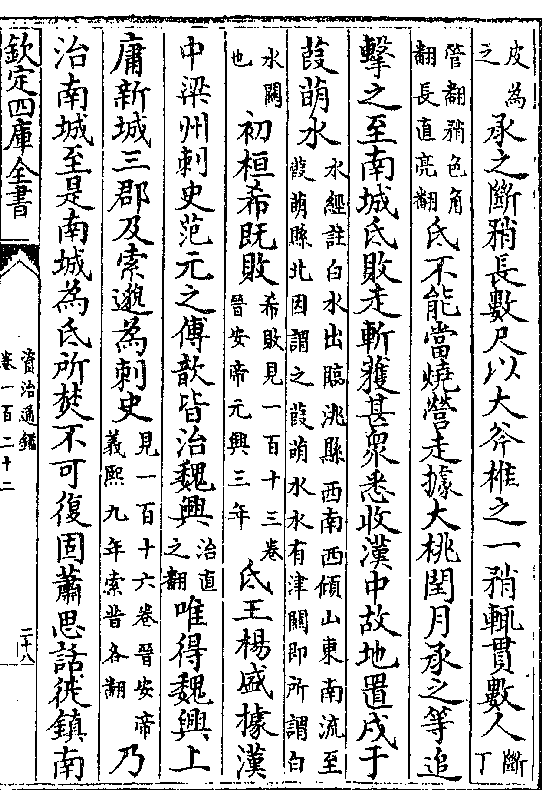 皮為之承之斷矟長數尺以大斧椎之一矟輒貫數人斷丁
管翻矟色角翻長直亮翻氐不能當燒營走據大桃閏月承之等追
擊之至南城氐敗走斬獲甚衆悉收漢中故地置戍于
葭萌水水經註白水出臨洮縣西南西傾山東南流至葭萌縣北因謂之葭萌水水有津關即所謂白
水關也初桓希既敗希敗見一百十三卷晉安帝元興三年氐王楊盛據漢
中梁州刺史范元之傅歆皆治魏興治直之翻唯得魏興上
庸新城三郡及索邈為刺史見一百十六卷晉安帝義熙九年索昔各翻乃
治南城至是南城為氐所焚不可復固蕭思話徙鎮南
欽定四庫全書
資治通鑑
卷一百二十二
二十八